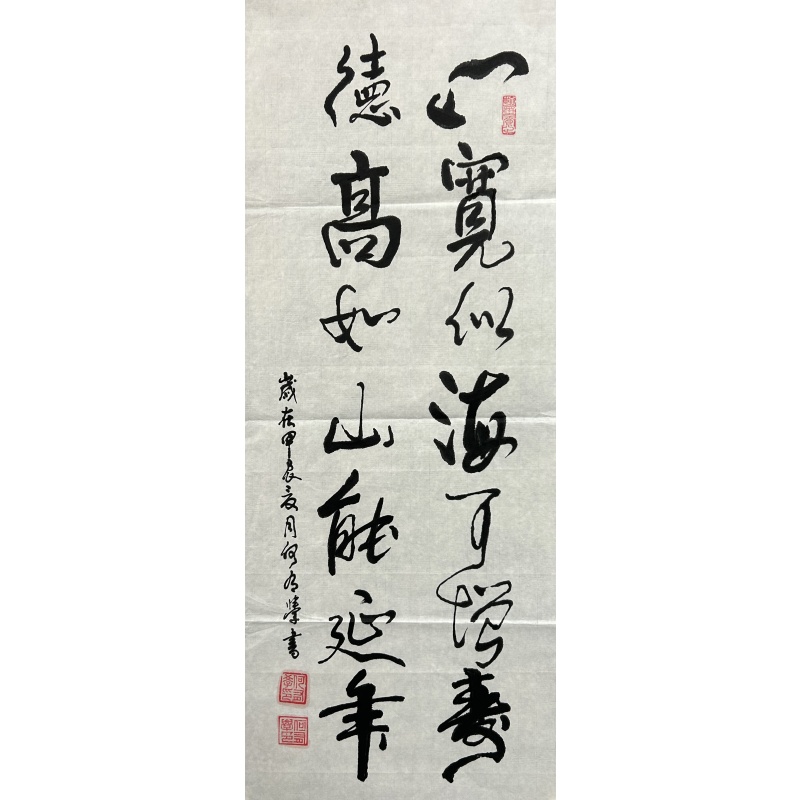 心寬似海可增壽
德高如山能延年
歲在甲辰夏月何書